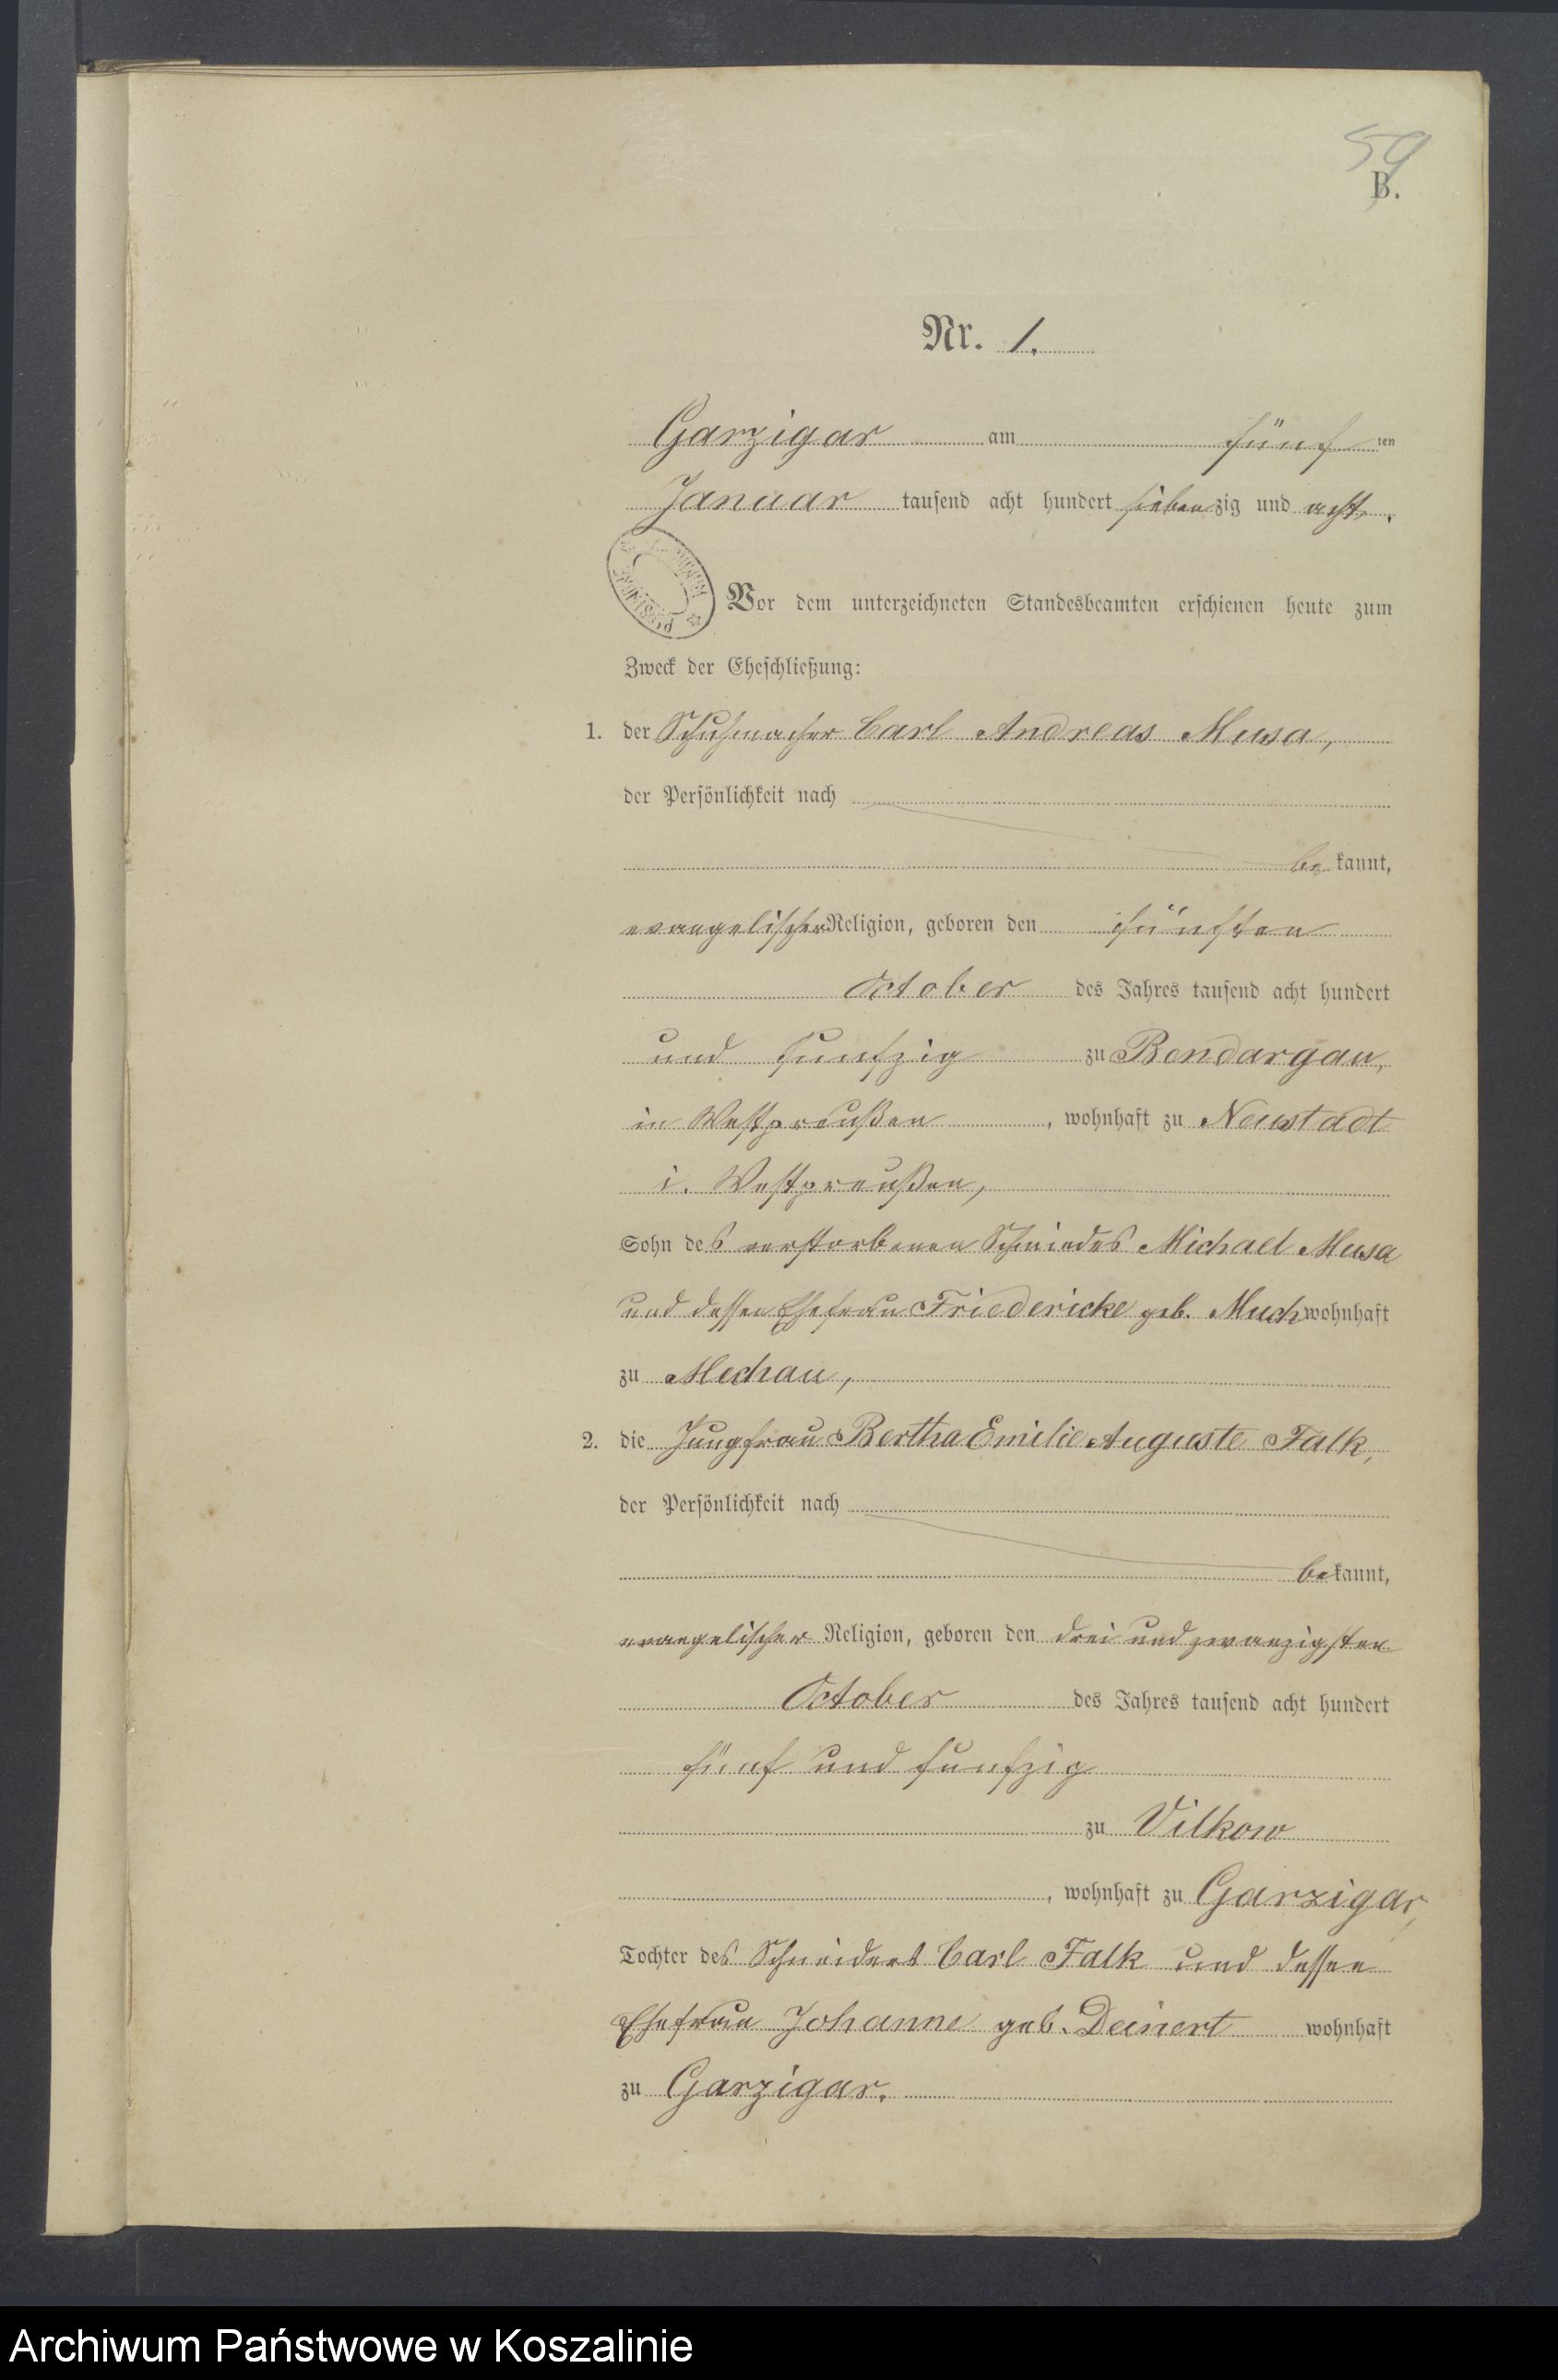 59
B.
Nr. 1.
Garzigar am fünf ten
Januar tausend acht hundert siebenzig und acht.
Vor dem unterzeichneten Standesbeamten erschienen heute zum
Zweck der Eheschließung:
1. der Schuhmacher Carl Andreas Musa,
der Persönlichkeit nach
be kannt,
evangelischer Religion, geboren den fünften
October des Jahres tausend acht hundert
und funfzig zu Bendargau,
in Westpreußen, wohnhaft zu Neustadt
i. Westpreußen,
Sohn des verstorbenen Schmiedes Michael Musa
und dessen Ehefrau Friedericke geb. Much wohnhaft
zu Mechau,
2. die Jungfrau Bertha Emilie Auguste Falk,
der Persönlichkeit nach
bekannt,
evangelischer Religion, geboren den drei und zwanzigsten
October des Jahres tausend acht hundert
fünf und funfzig
zu Vilkow
, wohnhaft zu Garzigar,
Tochter des Schneiders Carl Falk und dessen
Ehefrau Johanne geb. Deinert wohnhaft
zu Garzigar.
Archiwum Państwowe w Koszalinie